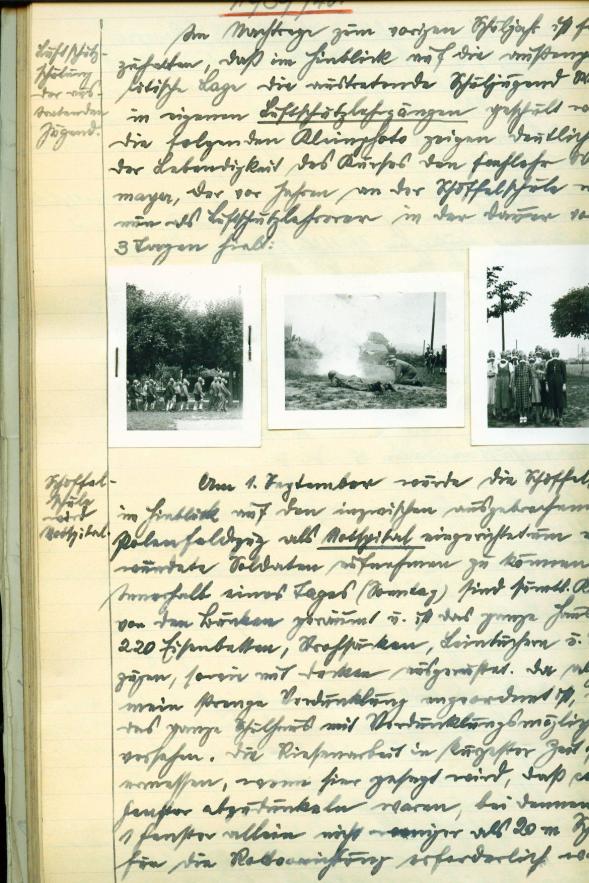 1939/40.
Luftschutz-
schulung
der aus-
tretenden
Jugend.
Im Nachtrage zum vorigen Schuljahr ist f
zuhalten, daß im Hinblick auf die außenp
litische Lage die austretende Schuljugend
in eigenen Luftschutzlehrgängen geschult w
die folgenden Kleinphoto zeigen deutlich
der Lebendigkeit des Kurses den Fachlehr
mayer, der vor Jahren an der Schöffelschule
nun als Luftschutzlehrer in der Dauer vo
3 Tagen hielt:
Schöffel-
schule
wird
Notspital.
Am 1. September wurde die Schöffel
im Hinblick auf den inzwischen ausgebrochenen
Polenfeldzug als Notspital eingerichtet um
wundete Soldaten aufnehmen zu können
Innerhalb eines Tages (Sonntag) sind sämtl. K
von den Bänken geräumt u. ist das ganze Haus
220 Eisenbetten, Strohsäcken, Leintüchern u.
zügen, sowie mit Decken ausgerüstet. Da al
mein strenge Verdunklung angeordnet ist,
das ganze Schulhaus mit Verdunklungsmöglich
versehen. Die Riesenarbeit in kürzester Zeit
ermessen, wenn hier gesagt wird, daß
Fenster abzudunkeln waren, bei denen
1 Fenster allein nicht weniger als 20 m
für die Rollvorrichtung erforderlich w